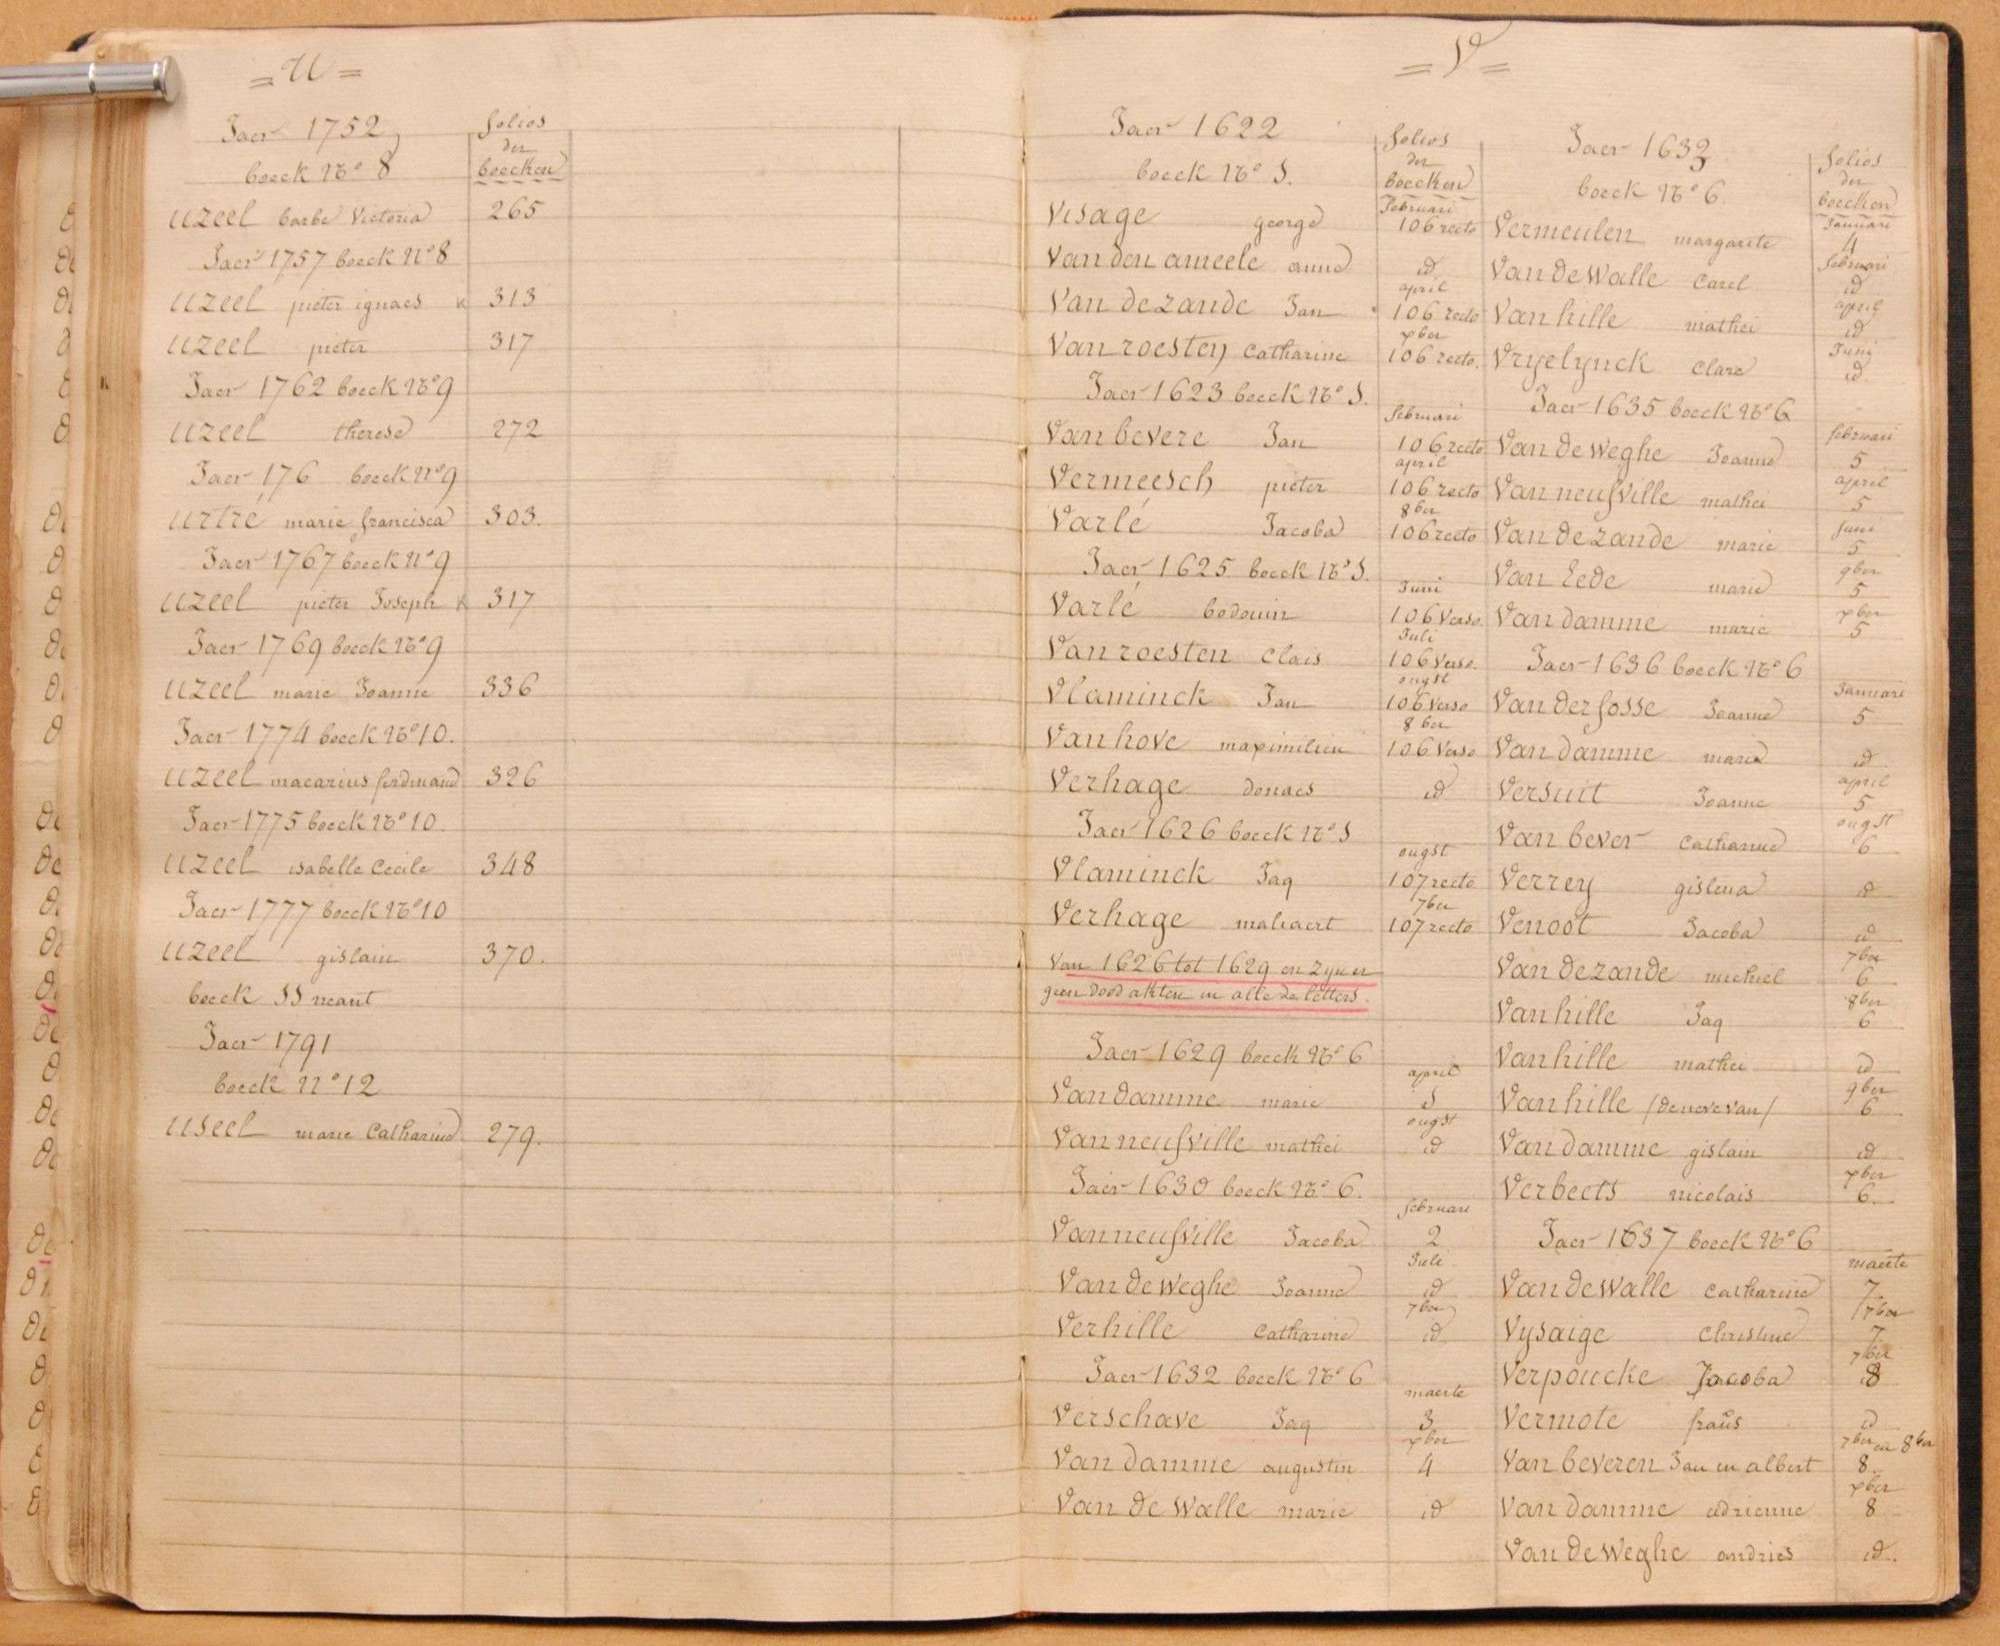 = U =
Jaer 1752
folios
der
boecken
boeck No 8
uzeel barbe Victoria 265
Jaer 1757 boeck No 8
uzeel pieter ignaes 313
uzeel pieter 317
Jaer 1762 boeck No 9
uzeel therese 272
Jaer 176 boeck No 9
urtré marie francisca 303.
Jaer 1767 boeck No 9
uzeel pieter Joseph 317
Jaer 1769 boeck No 9
uzeel marie Joanne 336
Jaer 1774 boeck No 10.
uzeel macarius ferdinand 326
Jaer 1775 boeck No 10.
uzeel isabelle Cecile 348
Jaer 1777 boeck No 10
uzeel gislain 370.
boeck 11 neant
Jaer 1791
boeck No 12
useel marie Catharine 279.
= V =
Jaer 1622
folios
der
boecken
boeck No 5.
februari
Visage george 106 recto
Van den ameele anne id
april
Van de zande Jan 106 recto
xber
Van roesten Catharine 106 recto.
Jaer 1623 boeck No 5.
februari
Van bevere Jan 106 recto
april
Vermeesch pieter 106 recto
8ber
Varlé Jacoba 106 recto
Jaer 1625 boeck No 5.
Juni
Varlé bodouin 106 Verso.
Juli
Van roesten Clais 106 Verso.
ougst
Vlaminck Jan 106 Verso
8ber
Van hove maximilien 106 Verso
Verhage donaes id
Jaer 1626 boeck No 5
ougst
Vlaminck Jaq 107 recto
7ber
Verhage maliaert 107 recto
Van 1626 tot 1629 en zyn er
geen dood akten in alle de letters.
Jaer 1629 boeck No 6
april
Van damme marie 1
ougst
Van neufville mathei id
Jaer 1630 boeck No 6.
februari
Van neufville Jacoba 2
Juli
Van de weghe Joanne id
7ber
Verhille Catharine id
Jaer 1632 boeck No 6
maerte
Verschave Jaq 3
xber
Van damme augustin 4
Van de Walle marie id
Jaer 1633
folios
der
boecken
boeck No 6.
Januari
Vermeulen margarite 4
februari
Van de Walle Carel id
april
Van hille mathei id
Juni
Vryelynck Clare id
Jaer 1635 boeck No 6
februari
Van de weghe Joanne 5
april
Van neufville mathei 5
Juni
Van de zande marie 5
9ber
Van Eede marie 5
xber
Van damme marie 5
Jaer 1636 boeck No 6
Januari
Van der fosse Joanne 5
Van damme marie id
april
Versuit Joanne 5
ougst
Van bever Catharine 6
Verrey gislena id
Venoot Jacoba id
7ber
Van de zande michiel 6
8ber
Van hille Jaq 6
Van hille mathei id
9ber
Van hille (deneve van) 6
Van damme gislain id
xber
Verbeets nicolais 6.
Jaer 1637 boeck No 6
maerte
Van de Walle Catharine 7
7ber
Vysaige Christine 7
7ber
Verpoucke Jacoba 8
Vermote frans id
7ber en 8ber
Van beveren Jan en albert 8
xber
Van damme adrienne 8
Van de Weghe andries id.